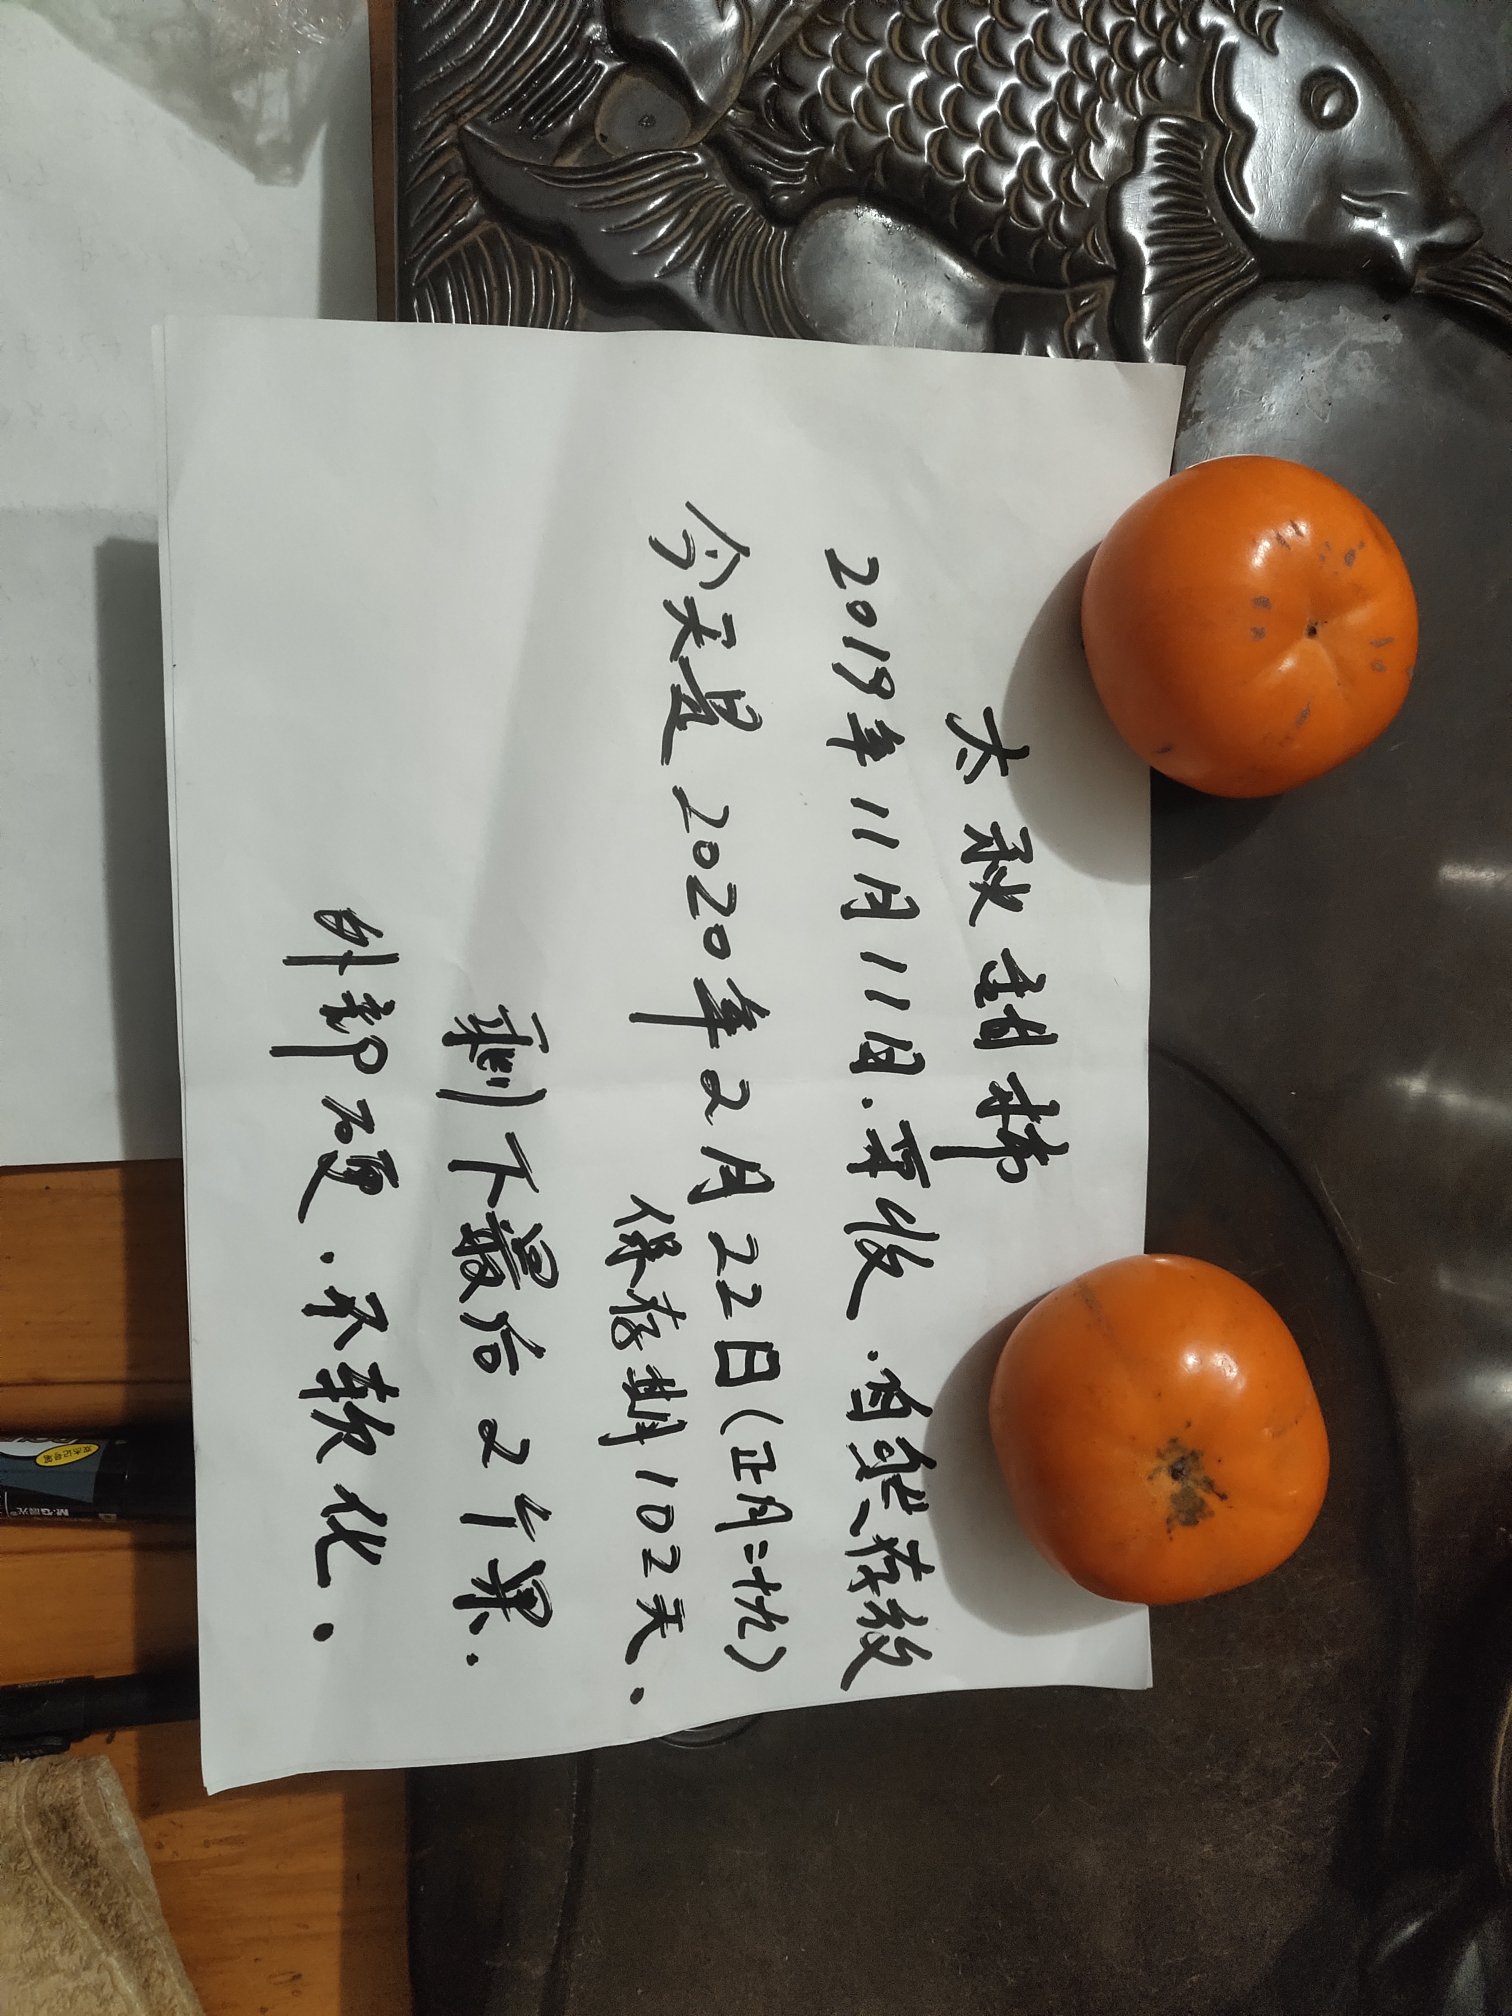 太秋甜柿
2019年11月11日.采收.自然存放
今天是2020年2月22日(正月二十九)
保存期102天.
剩下最后2个果.
外部硬.不软化.
M&G晨光